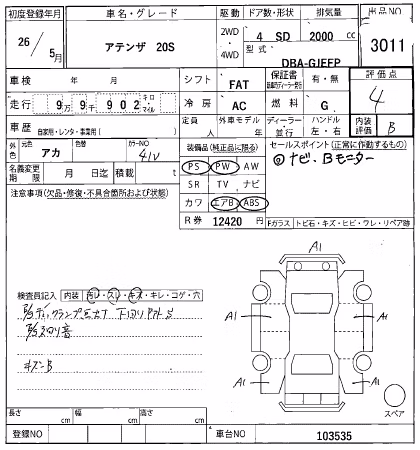 初度登録年月 車名・グレード 駆動 ドア数・形状 排気量 出品NO
26/5月 アテンザ 20S 2WD・4WD 4 SD 2000 cc 3011
型式 DBA-GJEFP
車検 年 月 シフト FAT 保証書 有・無 評価点
走行 9万9千902 キロ・マイル 冷房 AC 燃料 G 4
車歴 自家用・レンタ・事業用( ) 定員 人 外車モデル 年 ディーラー・並行 ハンドル 左・右 内装評価 B
外色 元色 アカ 色替 カラーNO 41V 装備品 (純正品に限る) セールスポイント (正常に作動するもの)
名義変更期限 月 日迄 積載 t PS PW AW ◎ナビ、Bモニター
注意事項 (欠品・修復・不具合箇所および状態) SR TV ナビ
カワ エアB ABS
R券 12420 円 Fガラス トビ石・キズ・ヒビ・ウレ・リペア跡
A1
検査員記入 内装 汚レ・スレ・キズ・キレ・コゲ・穴
A1 A1
キズ-B
A1 A1
スペア
長さ cm 幅 cm 高さ cm
登録NO 車台NO 103535